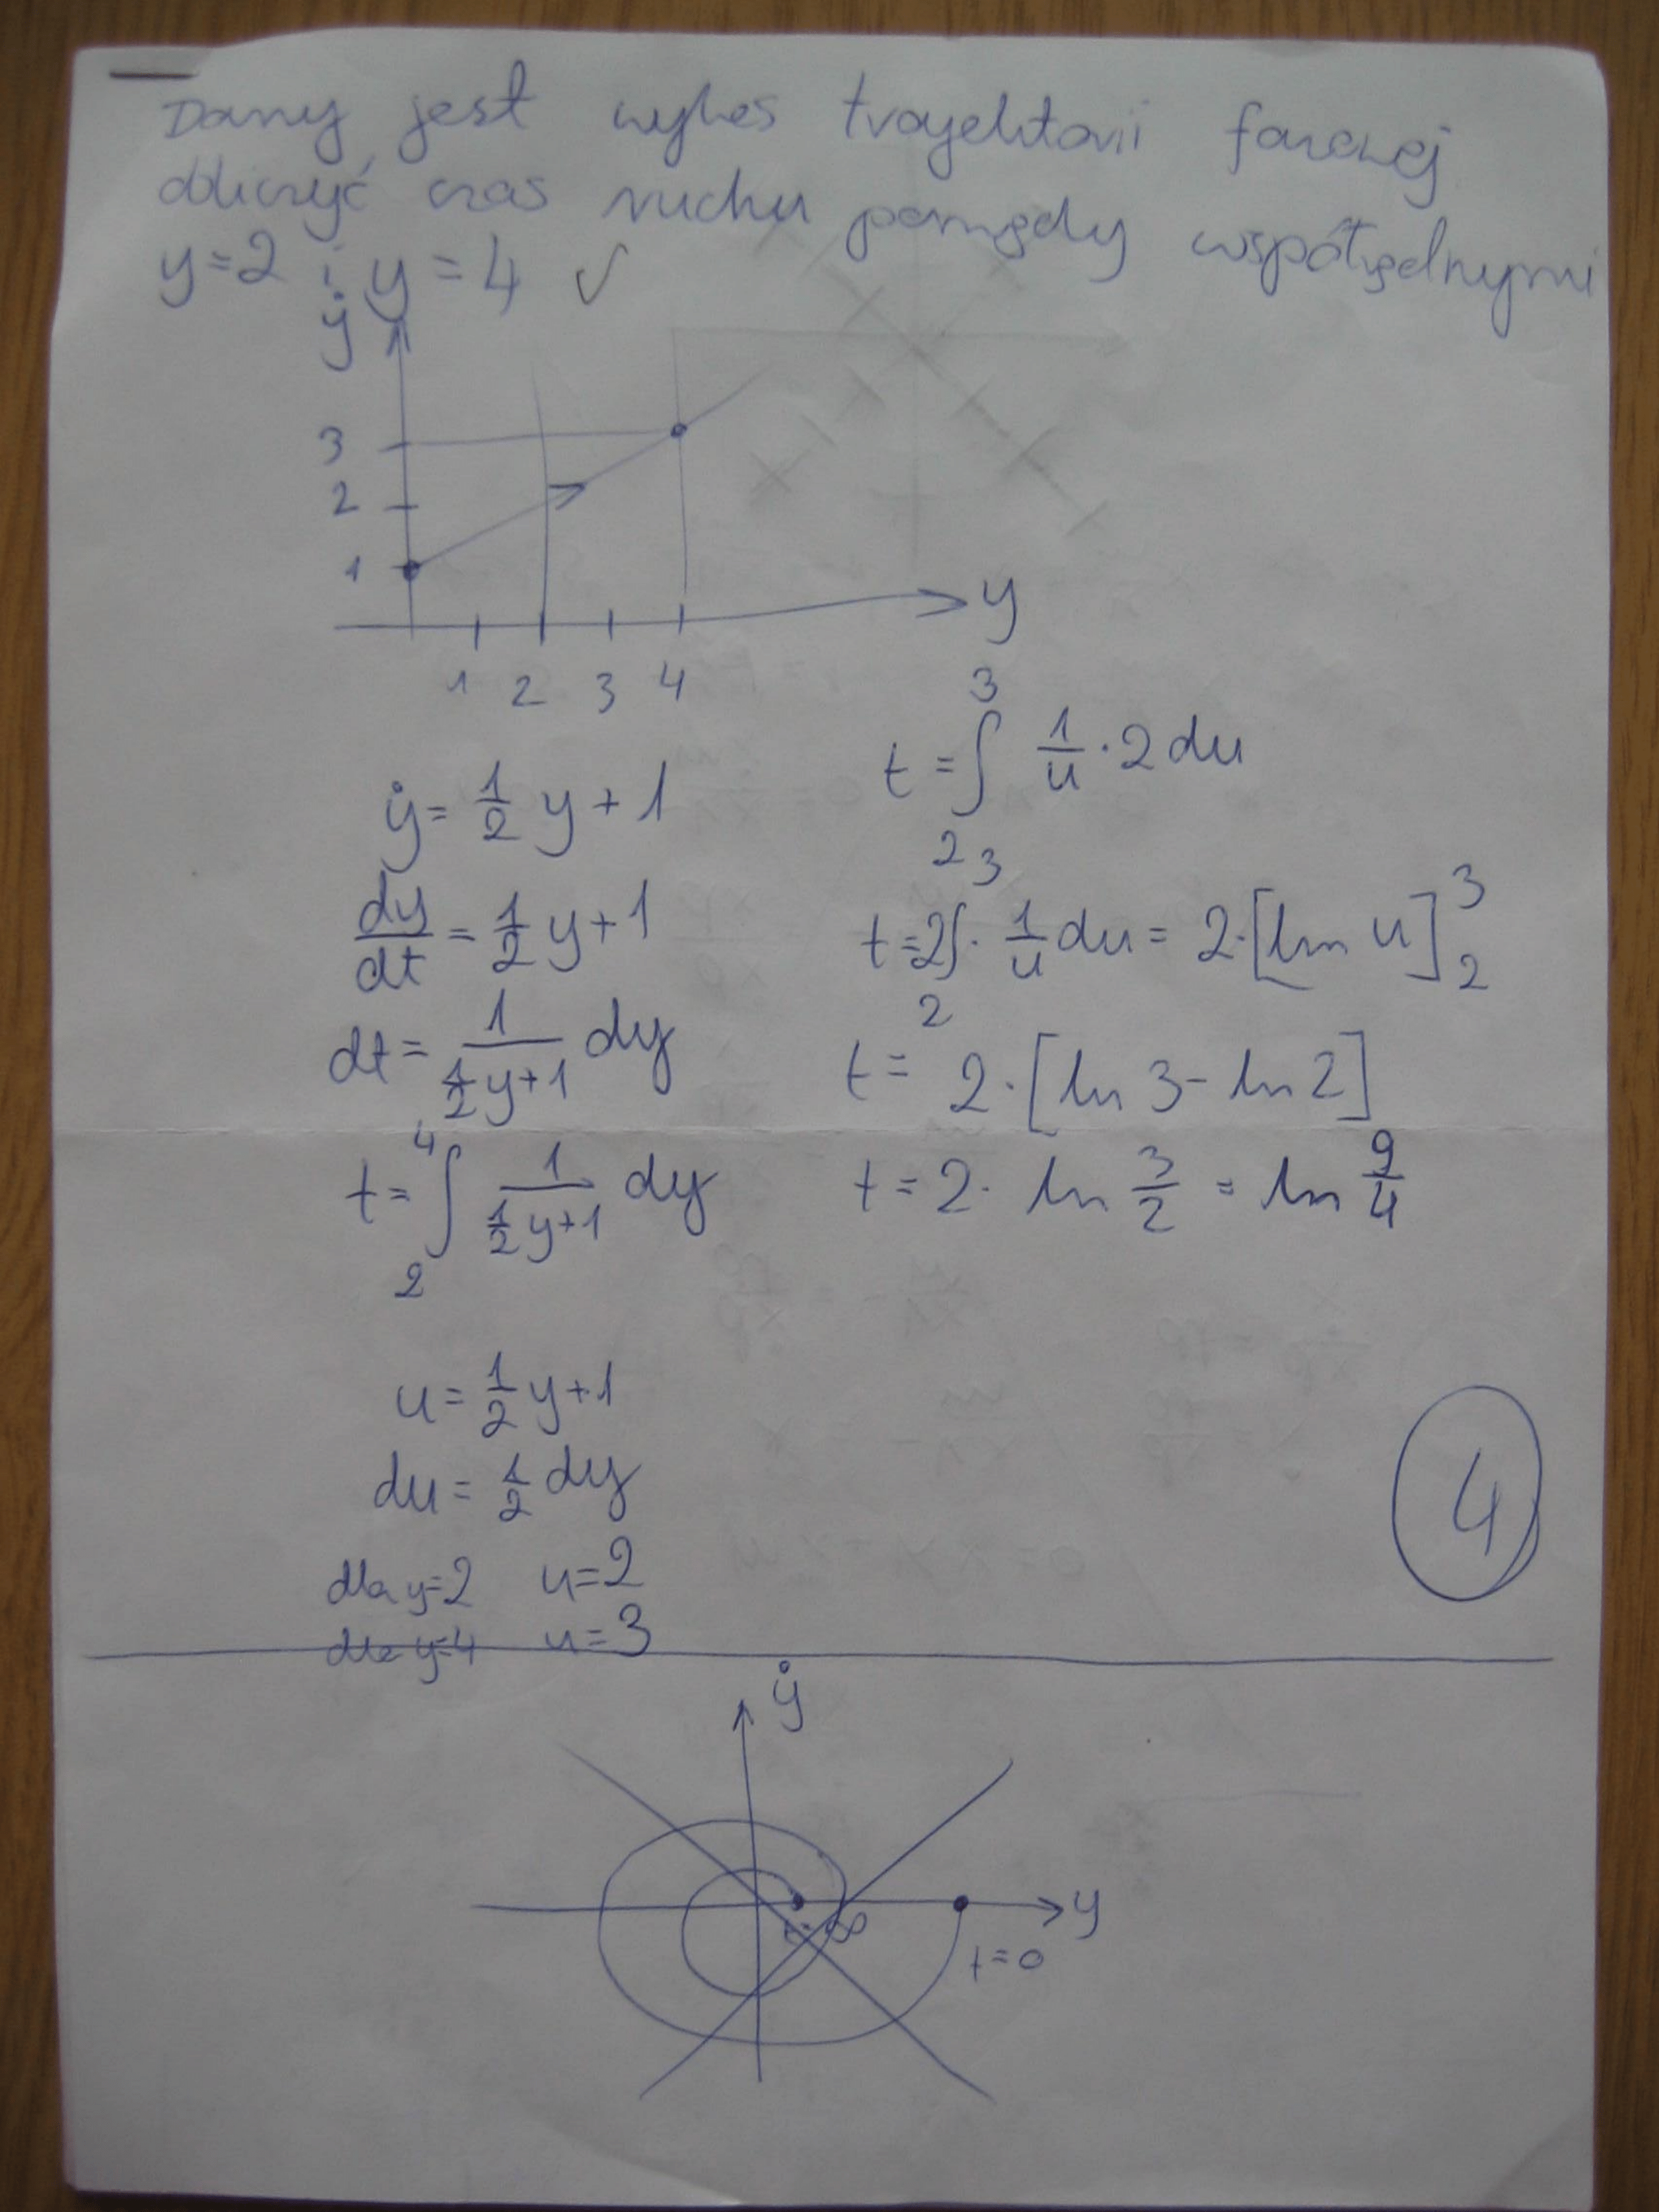 Dany jest wykes trajektorii fazowej
obliczyć czas ruchu pomiędzy współrzędnymi
y=2 i y=4 ✓
ẏ
3
2
1
y
1 2 3 4
ẏ = 1/2 y + 1
dy/dt = 1/2 y + 1
dt = 1/(1/2 y+1) dy
t = ∫₂⁴ 1/(1/2 y+1) dy
u = 1/2 y + 1
du = 1/2 dy
dla y=2 u=2
dla y=4 u=3
t = ∫₂³ 1/u · 2 du
t = 2∫₂³ · 1/u du = 2·[ln u]₂³
t = 2·[ln 3 - ln 2]
t = 2· ln 3/2 = ln 9/4
4
ẏ
y
t=∞
t=0